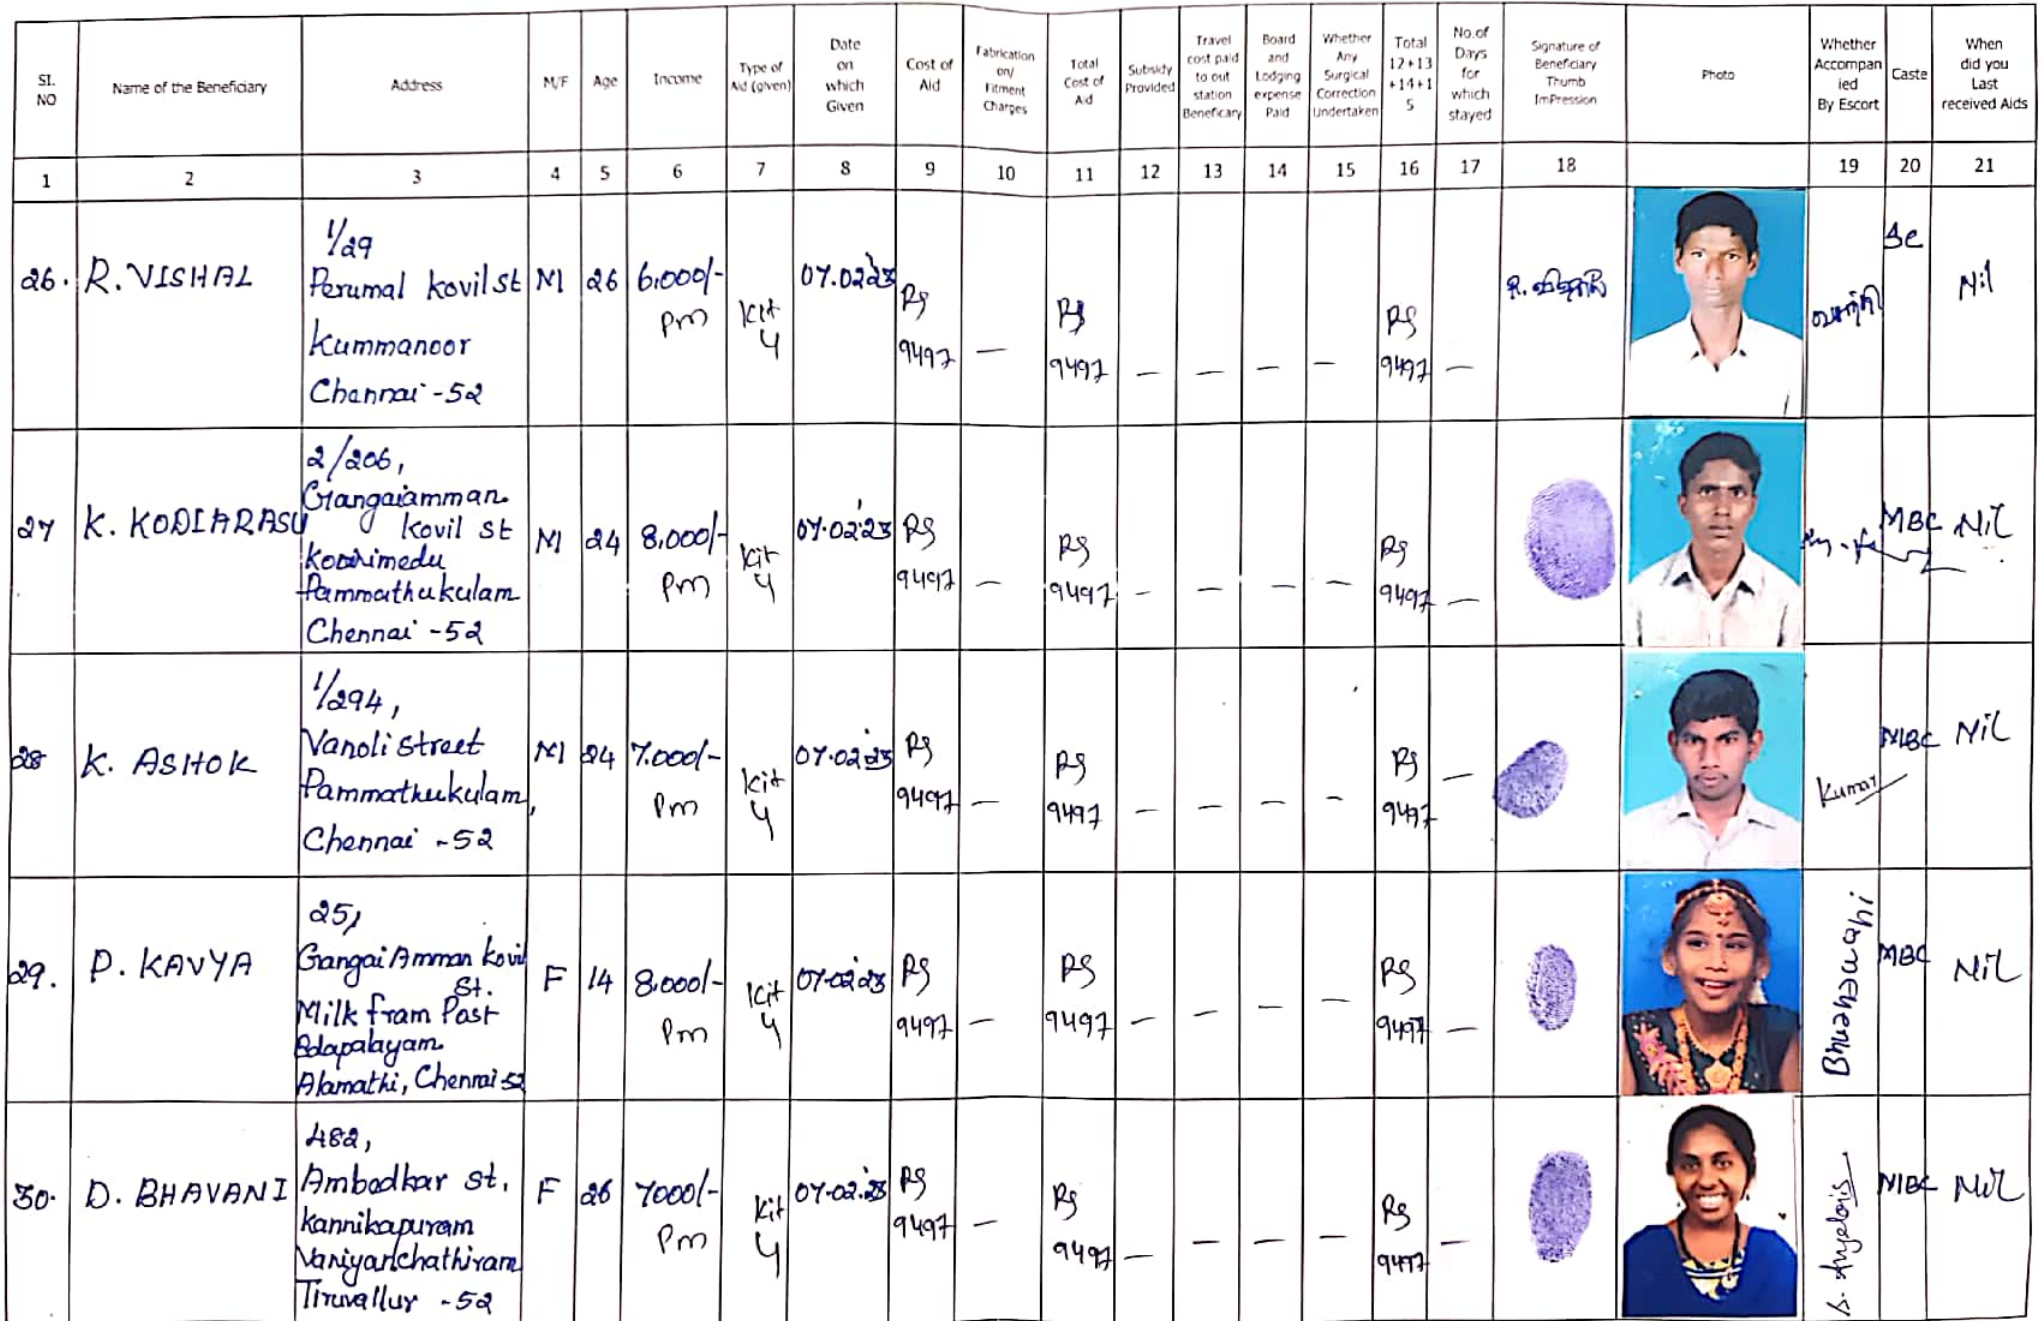 Sl. NO
Name of the Beneficiary
Address
M/F
Age
Income
Type of Aid (given)
Date on which Given
Cost of Aid
Fabrication on/ Fitment Charges
Total Cost of Aid
Subsidy Provided
Travel cost paid to out station Beneficary
Board and Lodging expense Paid
Whether Any Surgical Correction Undertaken
Total 12+13 +14+1 5
No.of Days for which stayed
Signature of Beneficiary Thumb ImPression
Photo
Whether Accompan ied By Escort
Caste
When did you Last received Aids
1 2 3 4 5 6 7 8 9 10 11 12 13 14 15 16 17 18 19 20 21
26. R. VISHAL
1/29
Perumal kovil st
Kummanoor
Chennai -52
M 26 6,000/- Pm Kit 4 07.02.23 Rs 9497 — Rs 9497 — — — — Rs 9497 —
R. விஷால்
Sc Nil
27 K. KODIARASU
2/206,
Gangaiamman
kovil st
Pammathukulam
Chennai -52
M 24 8,000/- Pm Kit 4 07.02.23 Rs 9497 — Rs 9497 — — — — Rs 9497 —
MBC Nil
28 K. ASHOK
1/294,
Vanoli Street
Pammathukulam,
Chennai -52
M 24 7.000/- Pm Kit 4 07.02.23 Rs 9497 — Rs 9497 — — — — Rs 9497 —
Kumar MBC Nil
29. P. KAVYA
25,
Gangai Amman kovil
St.
Milk fram Post
Edapalayam
Alamathi, Chennai 52
F 14 8,000/- Pm Kit 4 07.02.23 Rs 9497 — Rs 9497 — — — — Rs 9497 —
MBC Nil
30. D. BHAVANI
482,
Ambedkar st,
Kannikapuram
Vaniyanchathiram
Tiruvallur -52
F 26 7000/- Pm Kit 4 07.02.23 Rs 9497 — Rs 9497 — — — — Rs 9497 —
MBC Nil